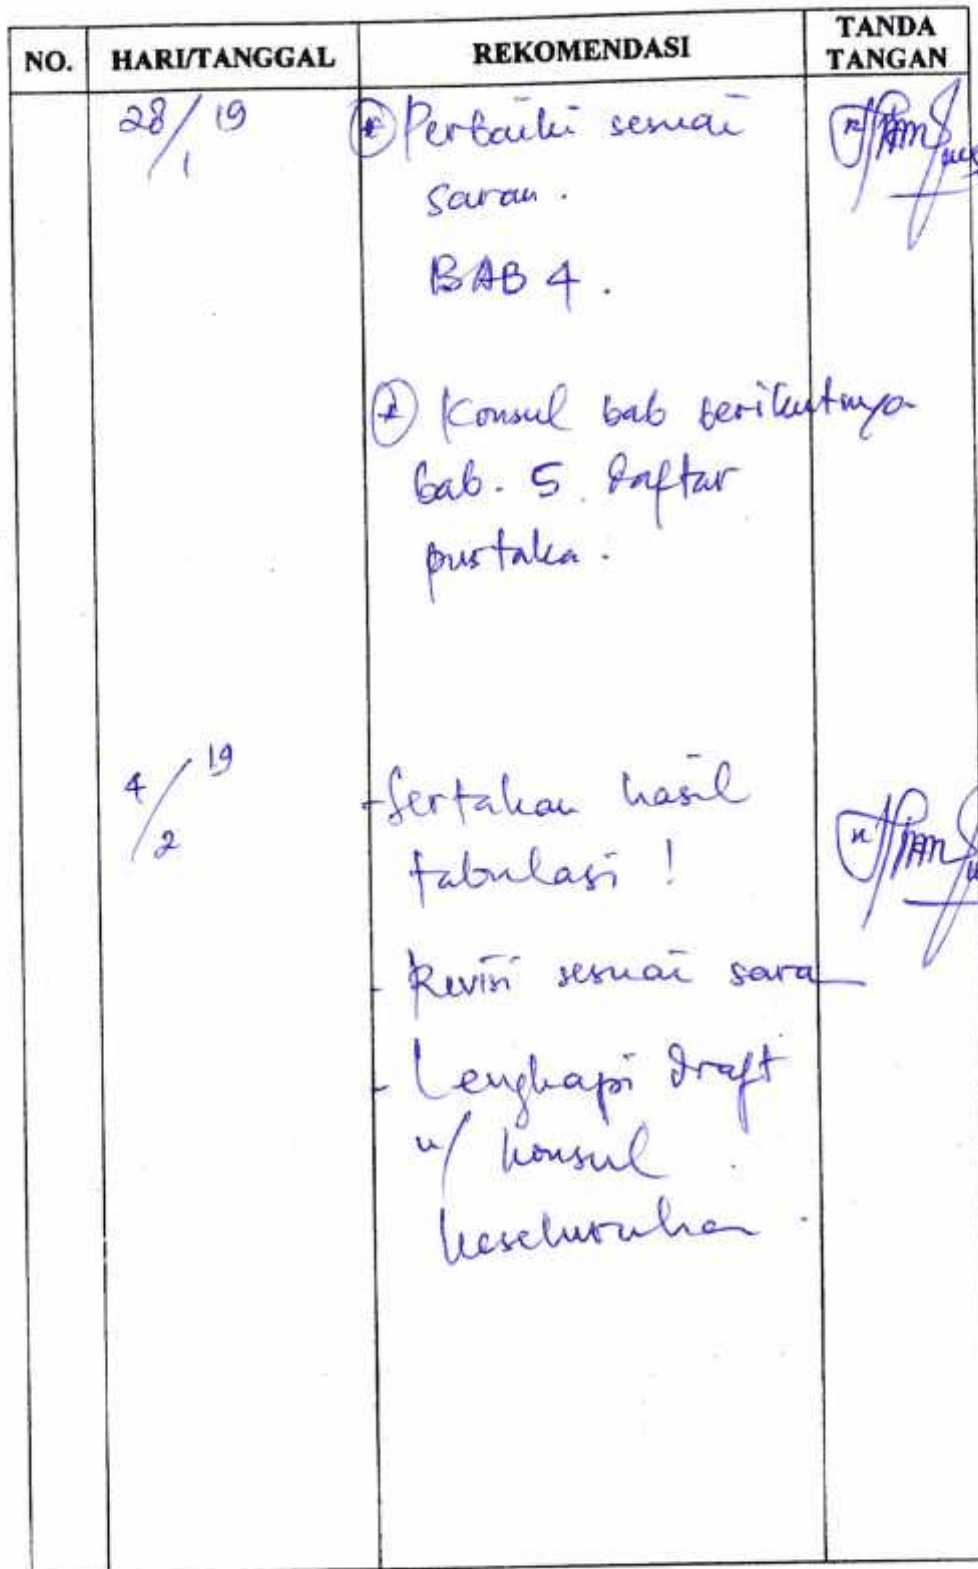 NO. HARI/TANGGAL REKOMENDASI TANDA TANGAN
28/1 19 * Perbaiki sesuai
saran.
BAB 4.
* Konsul bab berikutnya
bab. 5. daftar
pustaka.
4/2 19 - Sertakan hasil
tabulasi !
- Revisi sesuai saran
- Lengkapi draft
u/ konsul
keseluruhan.